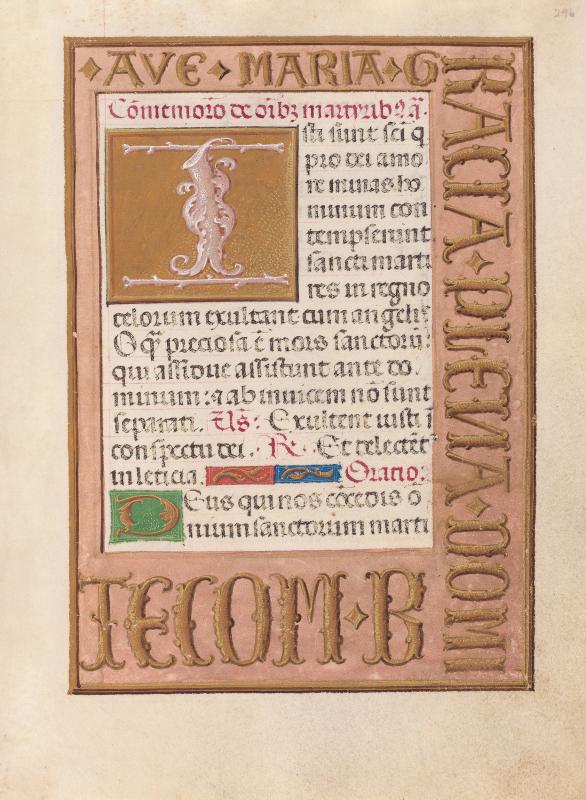 296
AVE · MARIA · G
RACIA · PLENA · DOMI
TECOM · B
Co͞memoro͞ de oi͞bꝫ martyribꝰ a͞.
Isti sunt sc͞i q
pro dei amo
re minas ho
minum con
tempserunt
sancti marti
res in regno
celorum exultant cum angelis
O q͞ preciosa e͞ mors sanctoru͞:
qui assidue assistunt ante do
minum: ⁊ ab invicem no͞ sunt
separati. Us: Exultent iusti i͞
conspectu dei. R. Et delecte͞t
in leticia. Oratio:
Deus qui nos co͞cedis o
mnium sanctorum marti